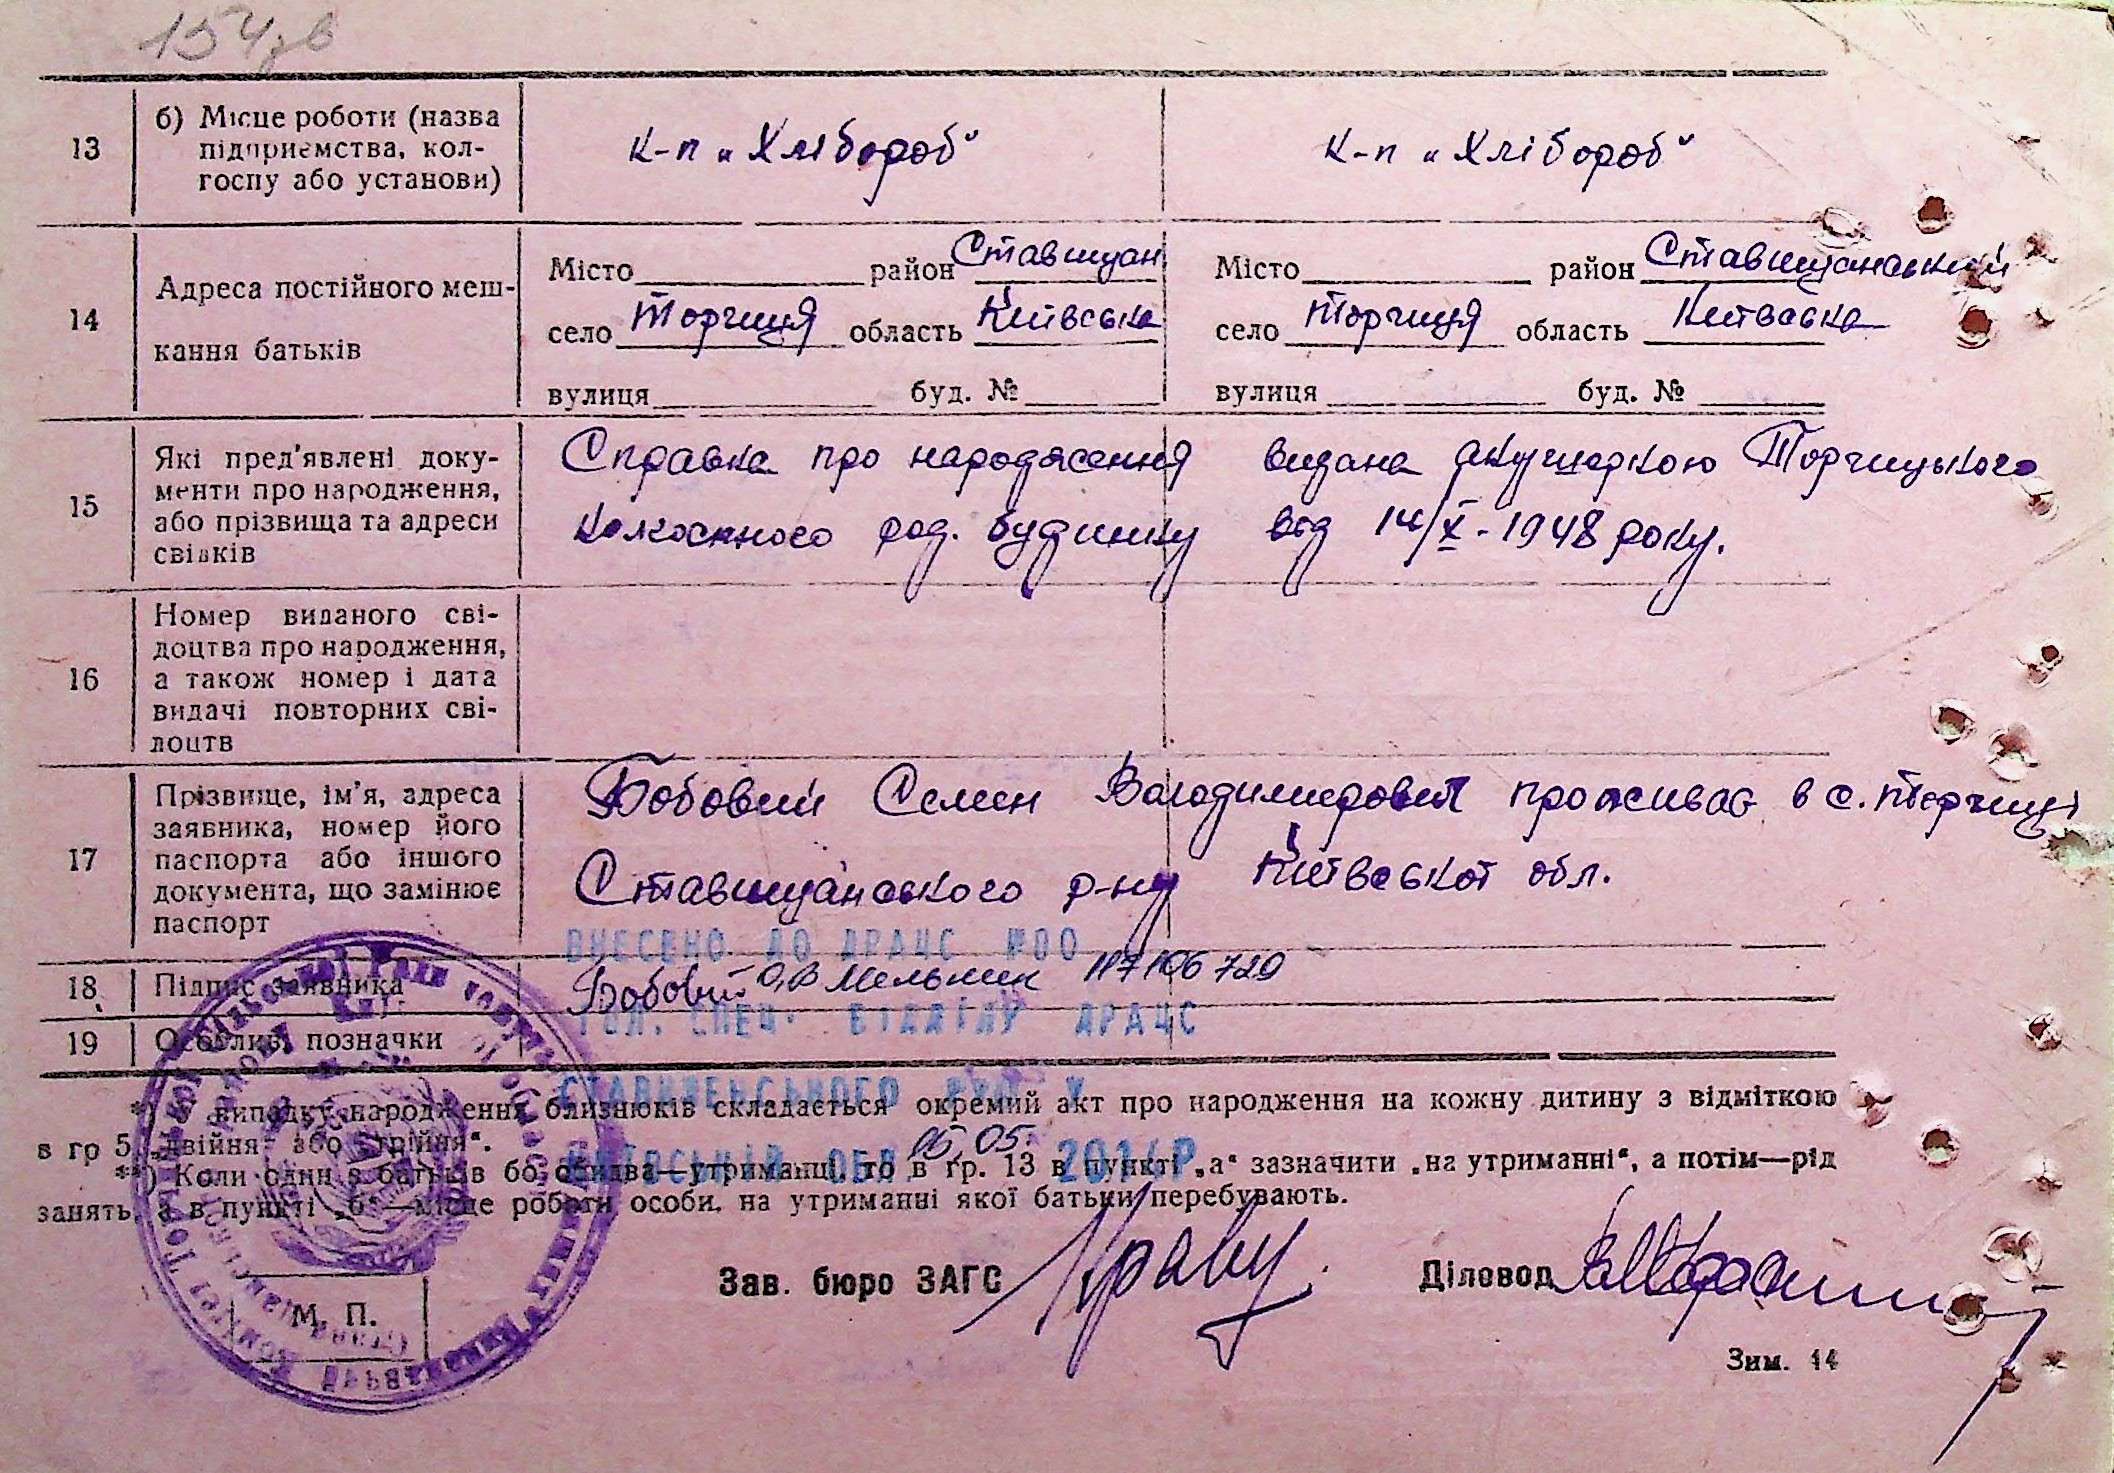 154зв
13
б) Місце роботи (назва
підприємства, кол-
госпу або установи)
к-п „Хлібороб“
к-п „Хлібороб“
14
Адреса постійного меш-
кання батьків
Місто район Ставищан
село Торчиця область Київська
вулиця буд. №
Місто район Ставищанський
село Торчиця область Київська
вулиця буд. №
15
Які пред'явлені доку-
менти про народження,
або прізвища та адреси
свідків
Справка про народження видана акушеркою Торчицького
колгоспного род. будинку від 14/X-1948 року.
16
Номер виданого сві-
доцтва про народження,
а також номер і дата
видачі повторних сві-
доцтв
17
Прізвище, ім'я, адреса
заявника, номер його
паспорта або іншого
документа, що замінює
паспорт
Бобовий Семен Володимирович проживає в с. Торчиці
Ставищанського р-ну Київської обл.
ВНЕСЕНО ДО ДРАЦС №00
117106729
18
Підпис заявника
Бобовий О.В Мельник
ГОЛ. СПЕЦ. ВІДДІЛУ ДРАЦС
19
Особливі позначки
*) У випадку народження близнюків складається окремий акт про народження на кожну дитину з відміткою
в гр 5 „двійня“ або „трійня“.
КИЇВСЬКІЙ ОБЛ. 05. 2014Р
**) Коли один з батьків бо обидва—утриманці, то в гр. 13 в пункті „а“ зазначити „на утриманні“, а потім—рід
занять, а в пункті „б“—місце роботи особи, на утриманні якої батьки перебувають.
Зав. бюро ЗАГС
Діловод
М. П.
Зим. 14